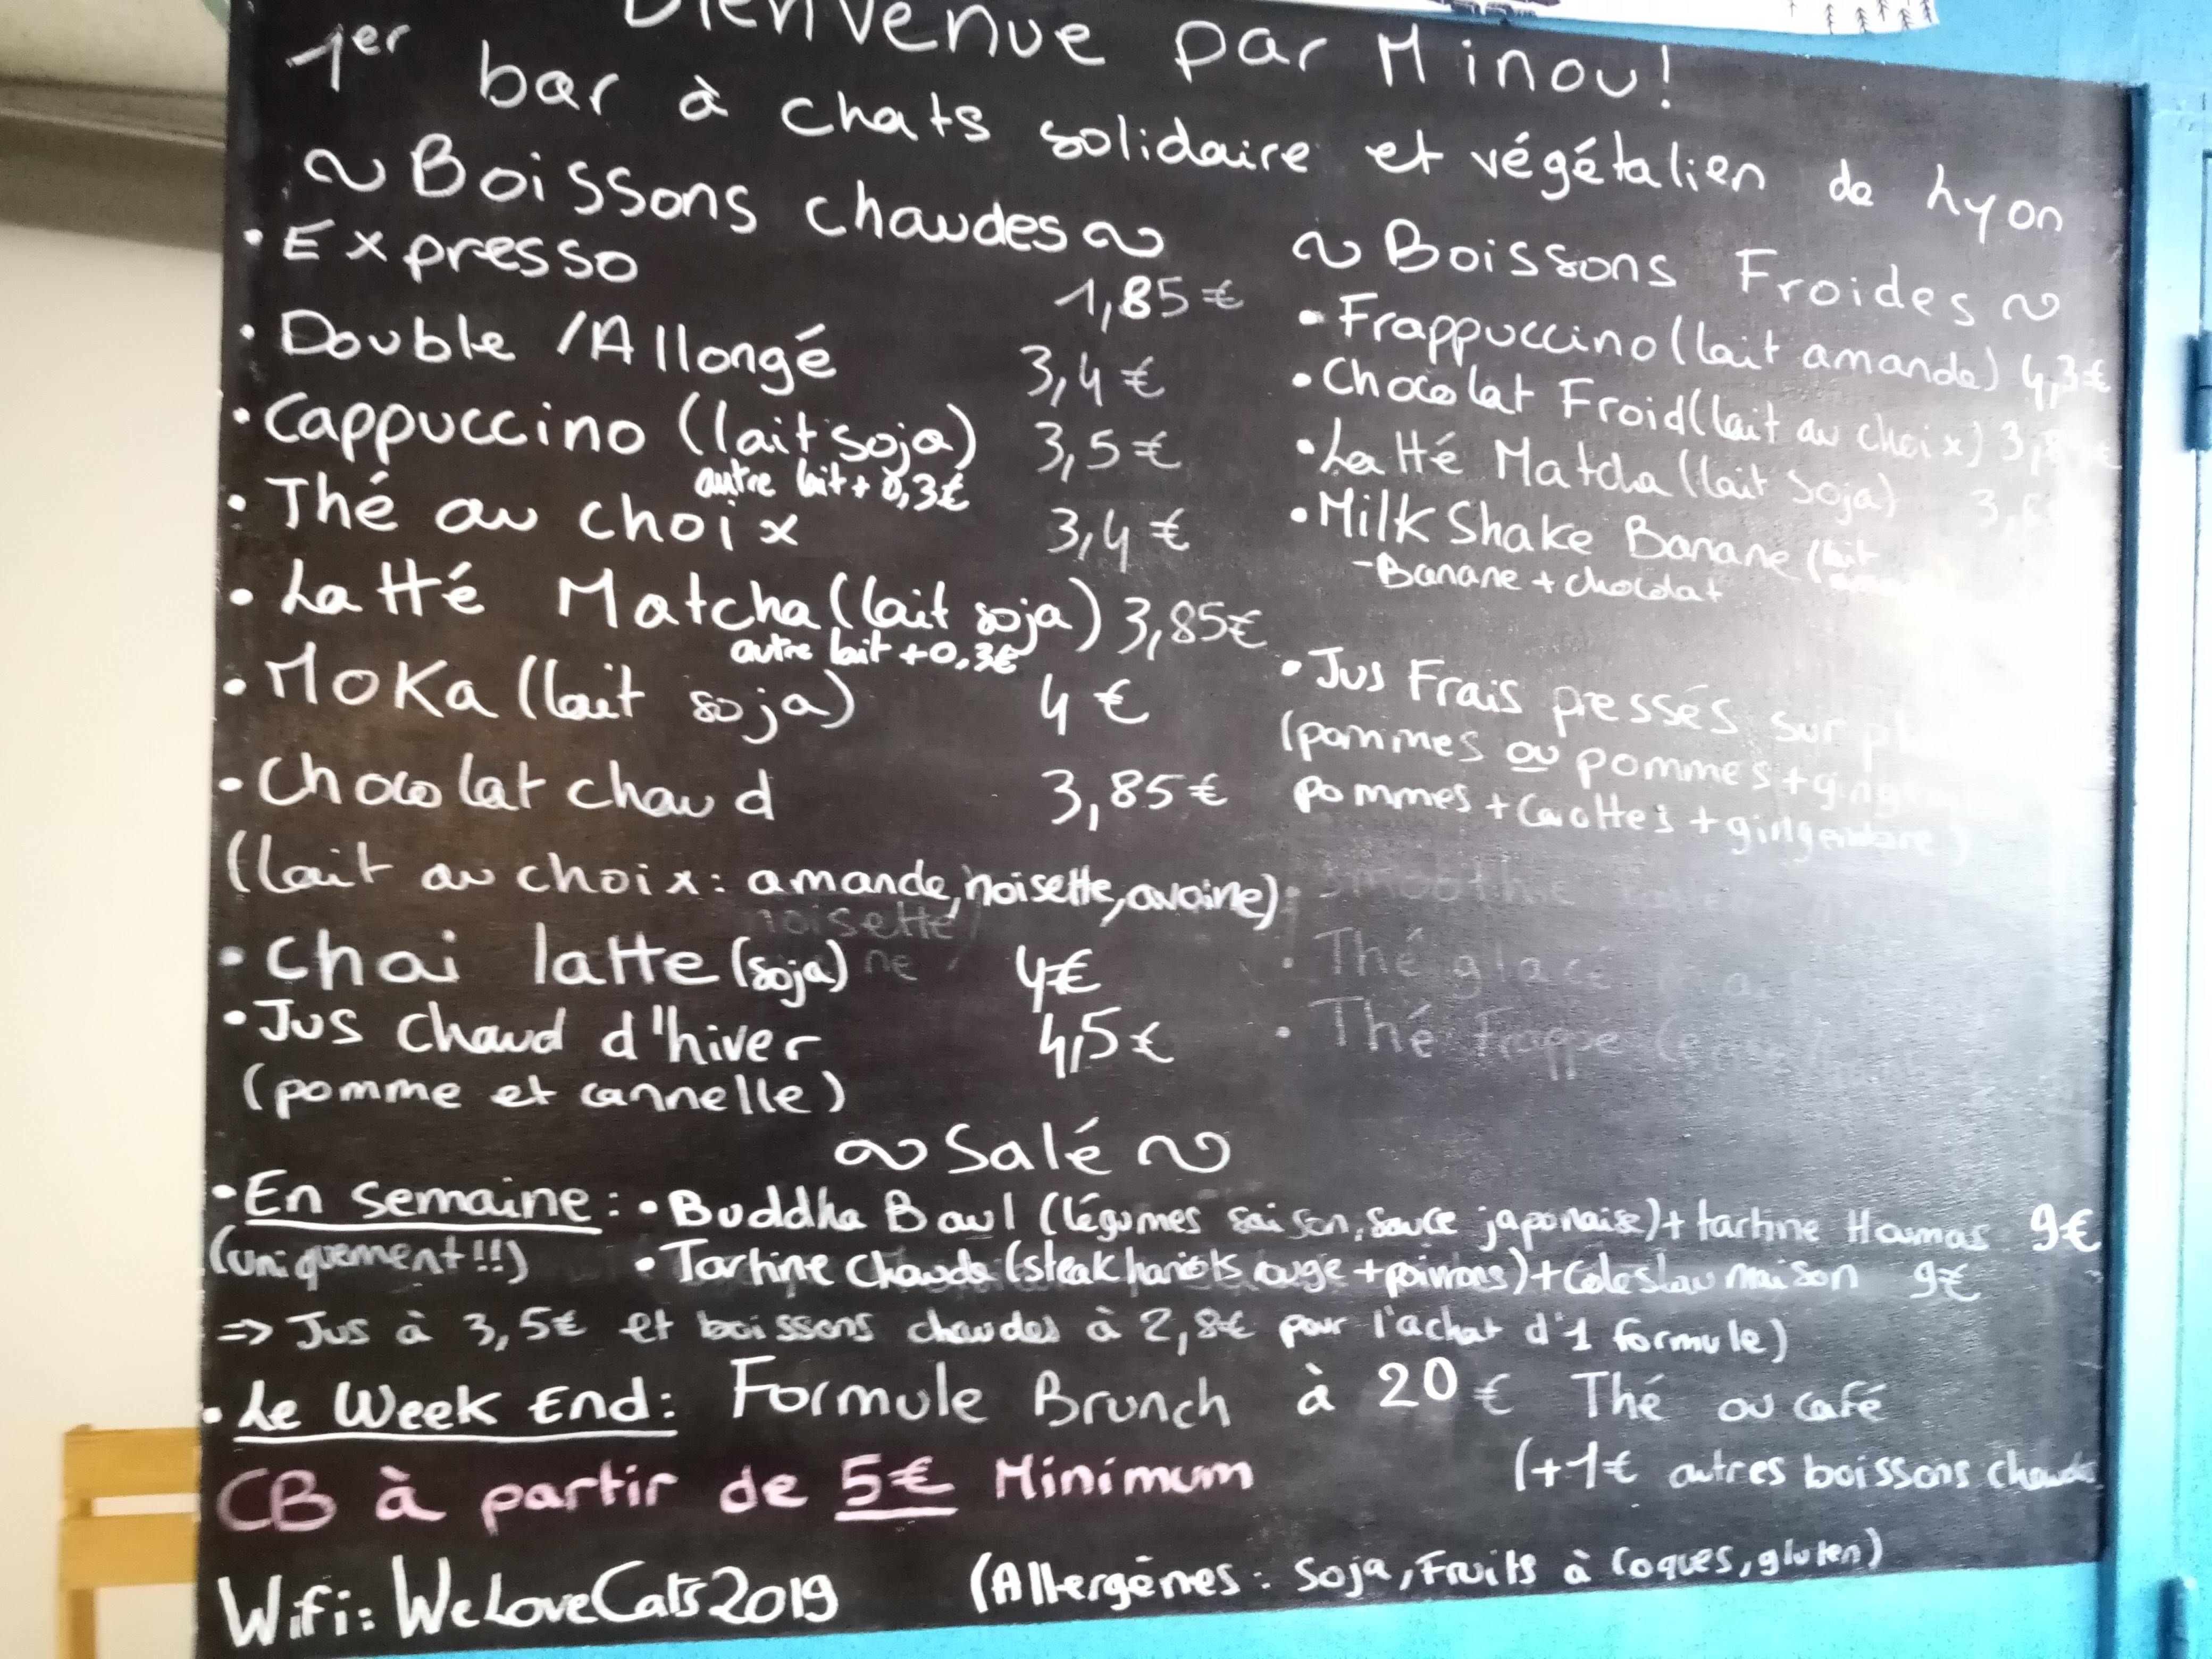 Bienvenue par Minou!
1er bar à chats solidaire et végétalien de Lyon
~ Boissons chaudes ~
• Expresso 1,85€
• Double /Allongé 3,4€
• Cappuccino (lait soja) 3,5€
autre lait + 0,3€
• Thé au choix 3,4€
• Latté Matcha (lait soja) 3,85€
autre lait +0,3€
• Moka (lait soja) 4€
• Chocolat chaud 3,85€
(lait au choix: amande, noisette, avoine)
noisette
ne
• Chai latte (soja) 4€
• Jus chaud d'hiver 4,5€
(pomme et cannelle)
~ Boissons Froides ~
• Frappuccino (lait amande) 4,3€
• Chocolat Froid (lait au choix) 3,
• Latté Matcha (lait soja) 3,
• Milk Shake Banane (lait
- Banane + chocolat
• Jus Frais pressés sur
(pommes ou pommes +
pommes + carottes + gingembre)
• Smoothie
• Thé glacé
• Thé Frappe
~ Salé ~
• En semaine: • Buddha Bowl (légumes saison, sauce japonaise) + tartine Houmas 9€
(uniquement!!) • Tartine chaude (steak haricots rouge + poivrons) + Coleslaw maison 9€
⇒ Jus à 3,5€ et boissons chaudes à 2,8€ pour l'achat d'1 formule)
• Le Week End: Formule Brunch à 20€ Thé ou café
(+1€ autres boissons chaudes
CB à partir de 5€ Minimum
Wifi: WeLoveCats2019 (Allergènes: Soja, Fruits à Coques, gluten)